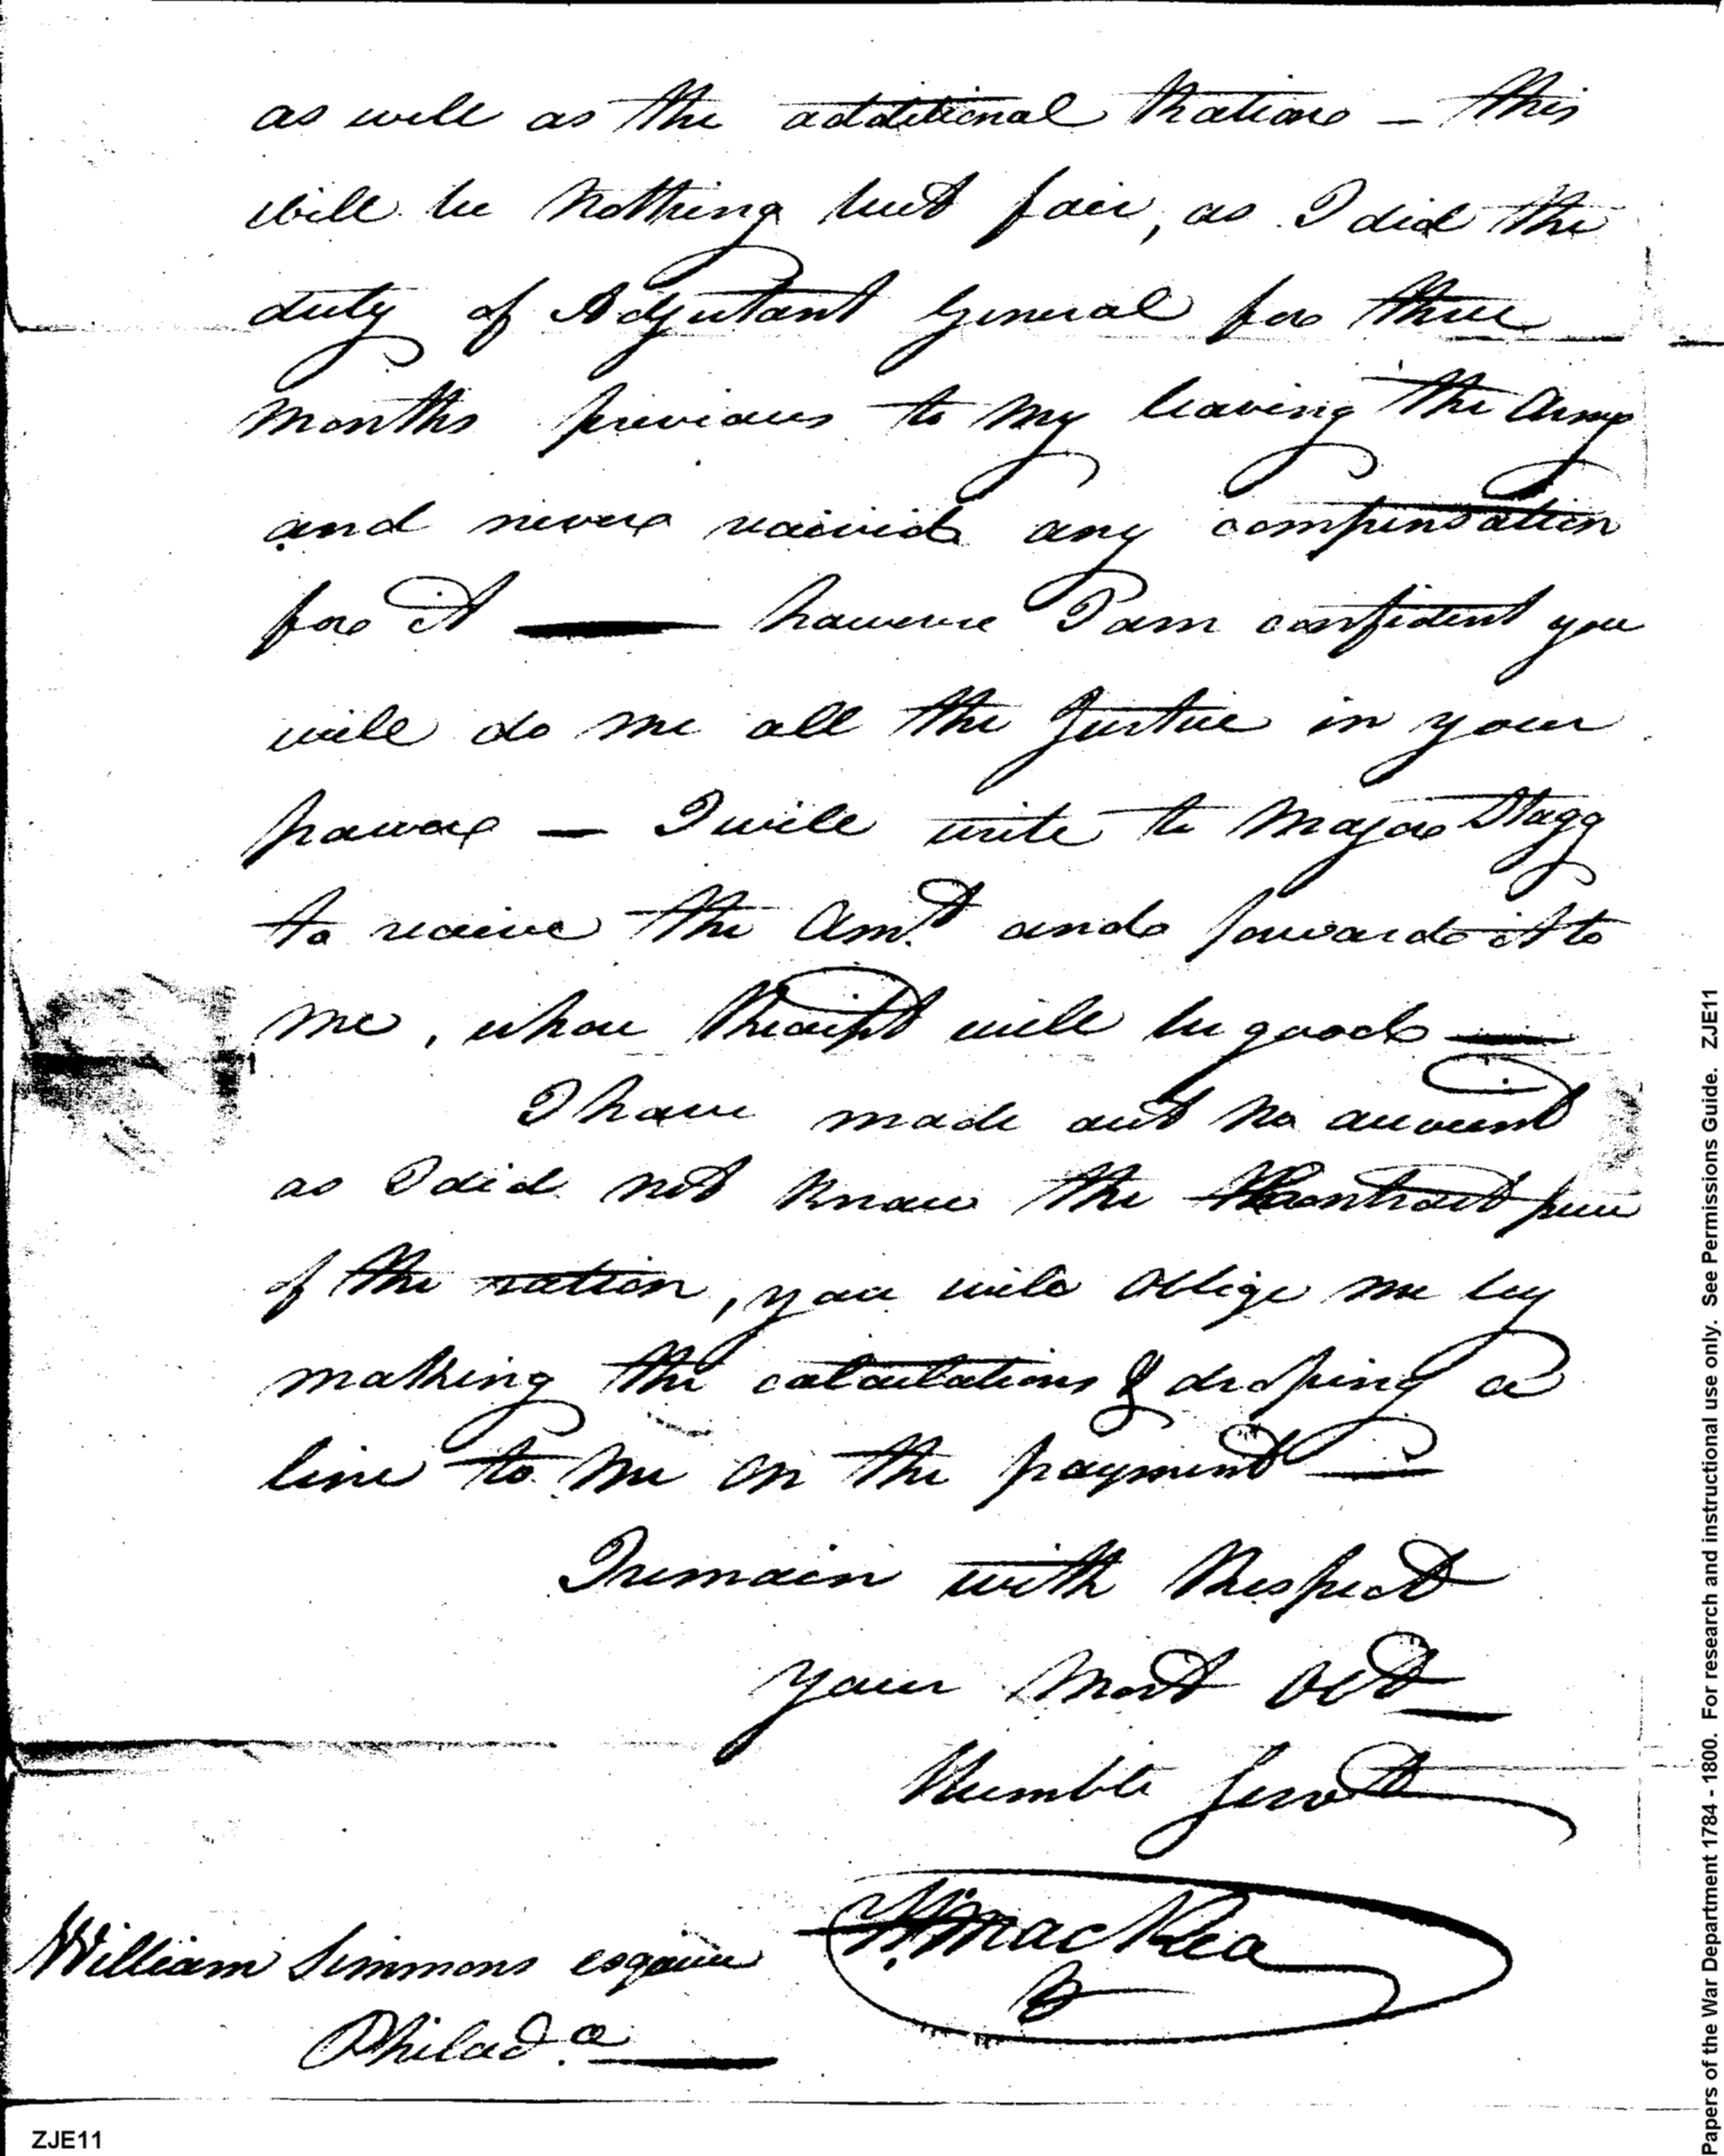 as well as the additional Rations — this
will be Nothing but fair, as I did the
duty of Adjutant General for three
Months previous to My leaving the Army
and never received any compensation
for it — however I am confident you
will do me all the Justice in your
power — I will write to Major Stagg
to receive the Amt. and forward it to
me, whose Receipt will be good —
I have made out No account
as I did not Know the Contract price
of the ration, you will oblige me by
making the calculations & droping a
line to Me on the payment —
I remain with Respect
your Most Obt
Humble Servt
MacRea
William Simmons esquire
Philad.a
ZJE11
Papers of the War Department 1784 - 1800. For research and instructional use only. See Permissions Guide. ZJE11